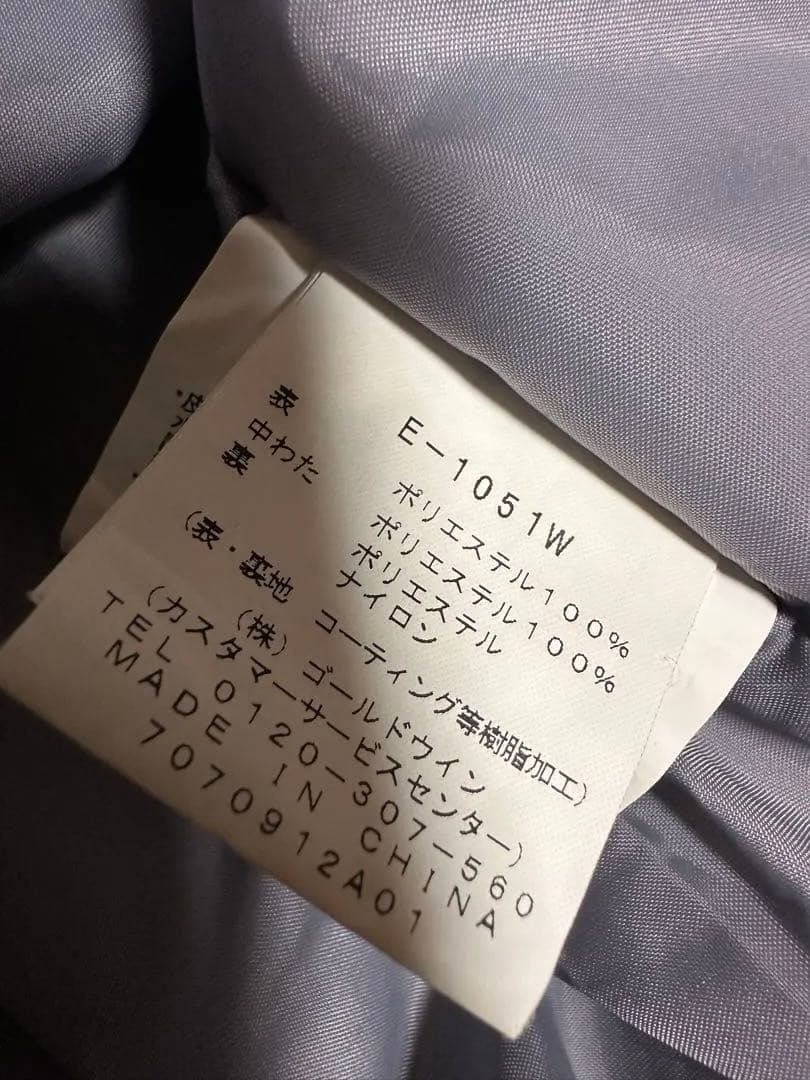 E-1051W
表 ポリエステル100%
中わた ポリエステル100%
裏 ポリエステル
ナイロン
(表・裏地 コーティング等樹脂加工)
(株)ゴールドウイン
(カスタマーサービスセンター)
TEL 0120-307-560
MADE IN CHINA
7070912A01